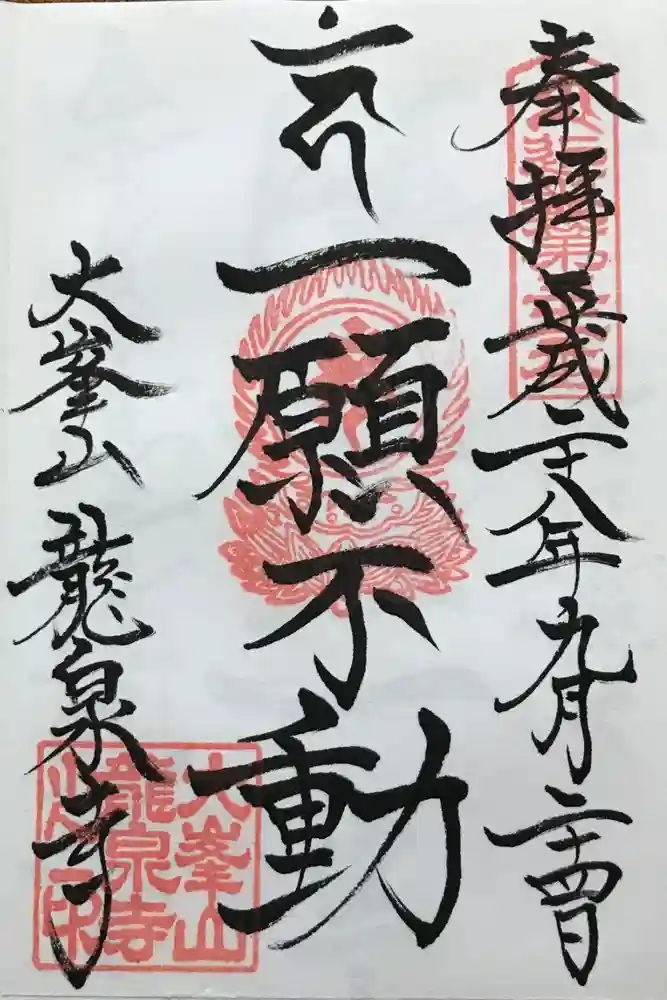 奉拝 平成二十八年九月二十四日
一願不動
大峯山 龍泉寺
大峯山
龍泉寺